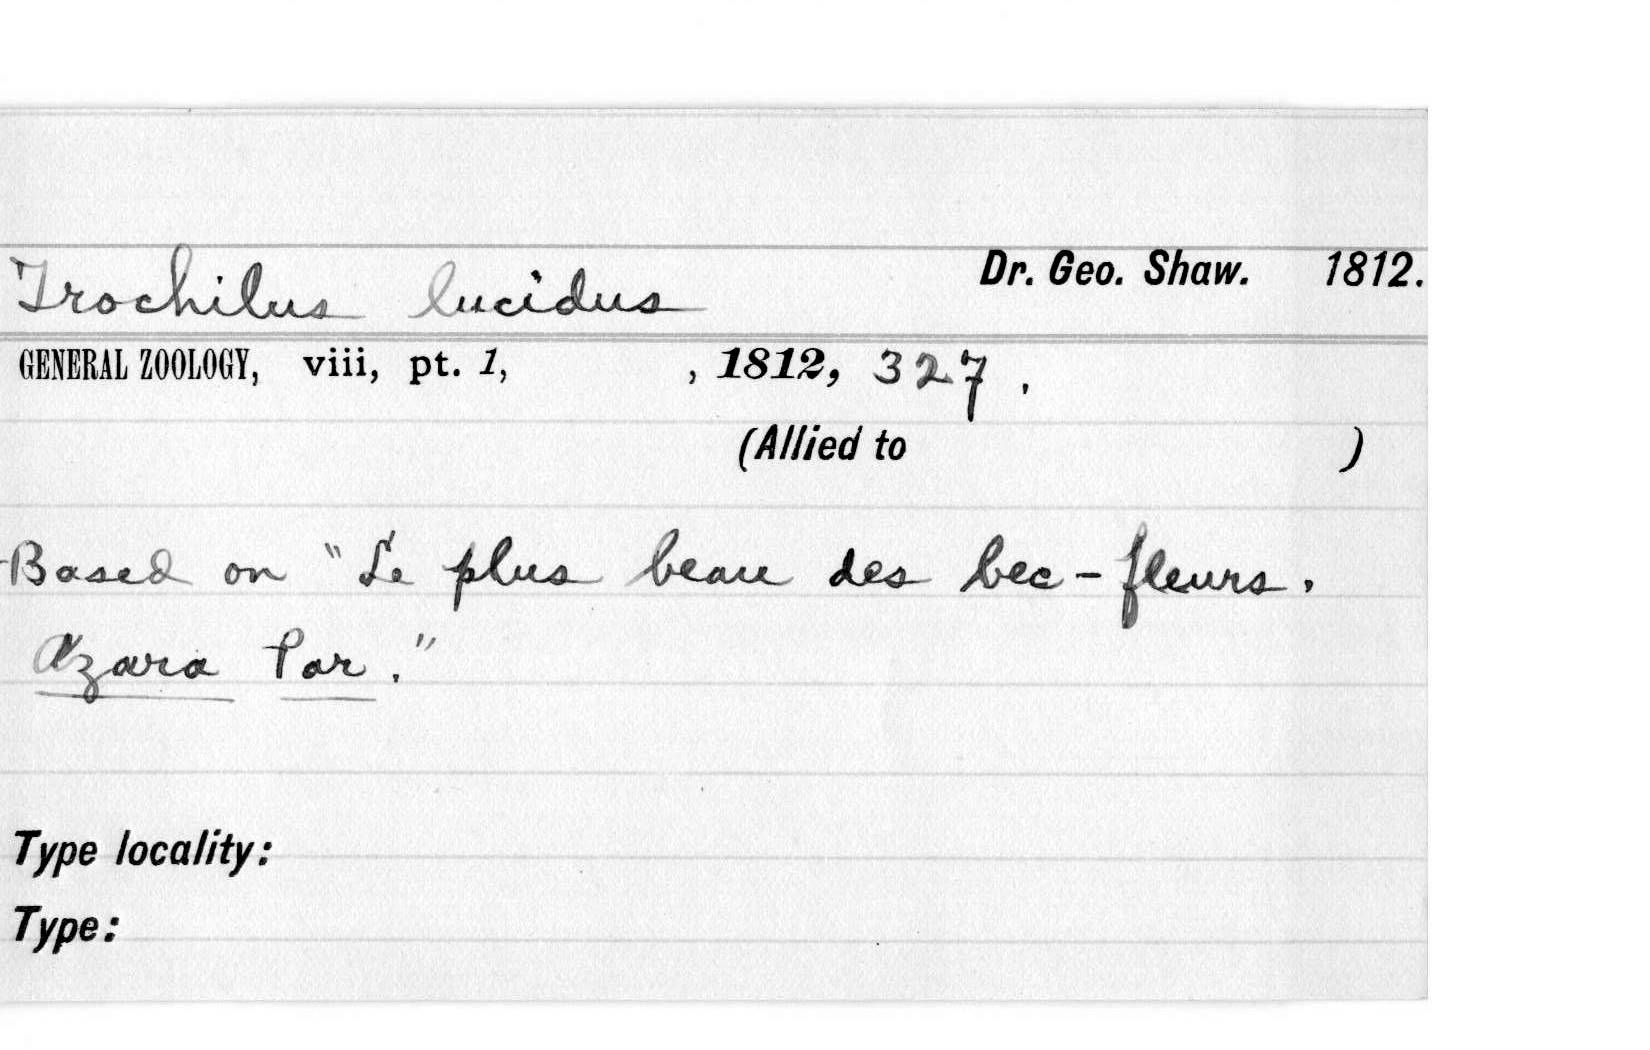 Trochilus lucidus Dr. Geo. Shaw. 1812.
GENERAL ZOOLOGY, viii, pt. 1, , 1812, 327.
(Allied to )
Based on "Le plus beau des bec-fleurs.
Azara Par."
Type locality:
Type: